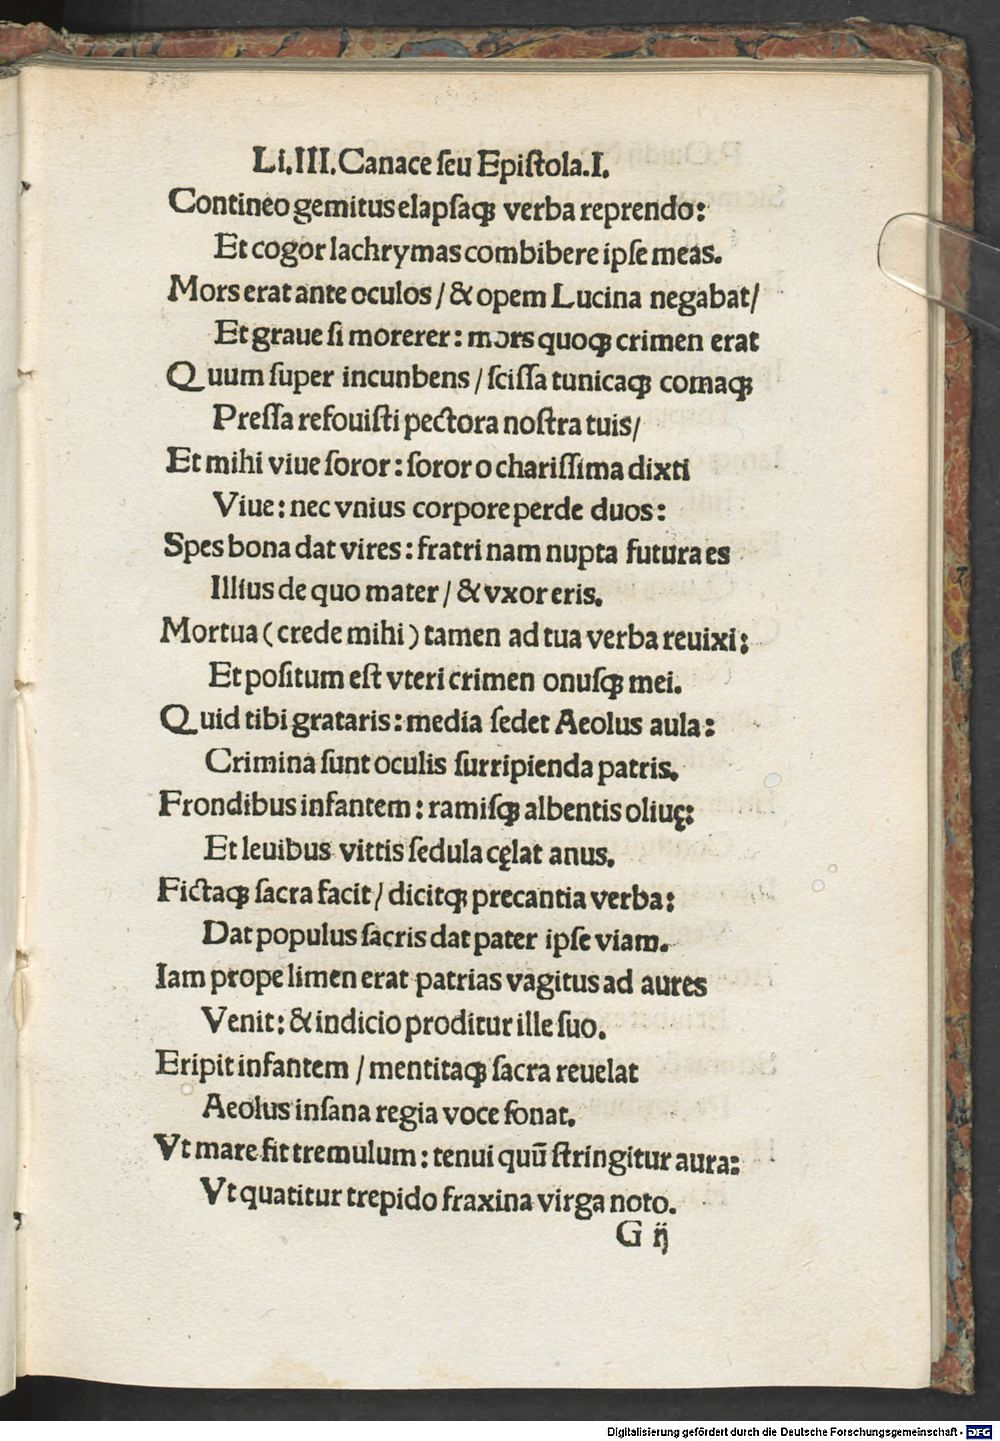 Li.III.Canace ſeu Epiſtola.I.
Contineo gemitus elapſaqꝫ verba reprendo:
Et cogor lachrymas combibere ipſe meas.
Mors erat ante oculos / & opem Lucina negabat/
Et graue ſi morerer: mors quoqꝫ crimen erat
Quum ſuper incunbens / ſciſſa tunicaqꝫ comaqꝫ
Preſſa refouiſti pectora noſtra tuis/
Et mihi viue ſoror: ſoror o chariſſima dixti
Viue: nec vnius corpore perde duos:
Spes bona dat vires: fratri nam nupta futura es
Illius de quo mater / & vxor eris.
Mortua (crede mihi) tamen ad tua verba reuixi:
Et poſitum eſt vteri crimen onuſqꝫ mei.
Quid tibi grataris: media ſedet Aeolus aula:
Crimina ſunt oculis ſurripienda patris.
Frondibus infantem: ramiſqꝫ albentis oliuę:
Et leuibus vittis ſedula cęlat anus.
Fictaqꝫ ſacra facit / dicitqꝫ precantia verba:
Dat populus ſacris dat pater ipſe viam.
Iam prope limen erat patrias vagitus ad aures
Venit: & indicio proditur ille ſuo.
Eripit infantem / mentitaqꝫ ſacra reuelat
Aeolus inſana regia voce ſonat.
Vt mare fit tremulum: tenui quū ſtringitur aura:
Vt quatitur trepido fraxina virga noto.
G ij
Digitalisierung gefördert durch die Deutsche Forschungsgemeinschaft - DFG